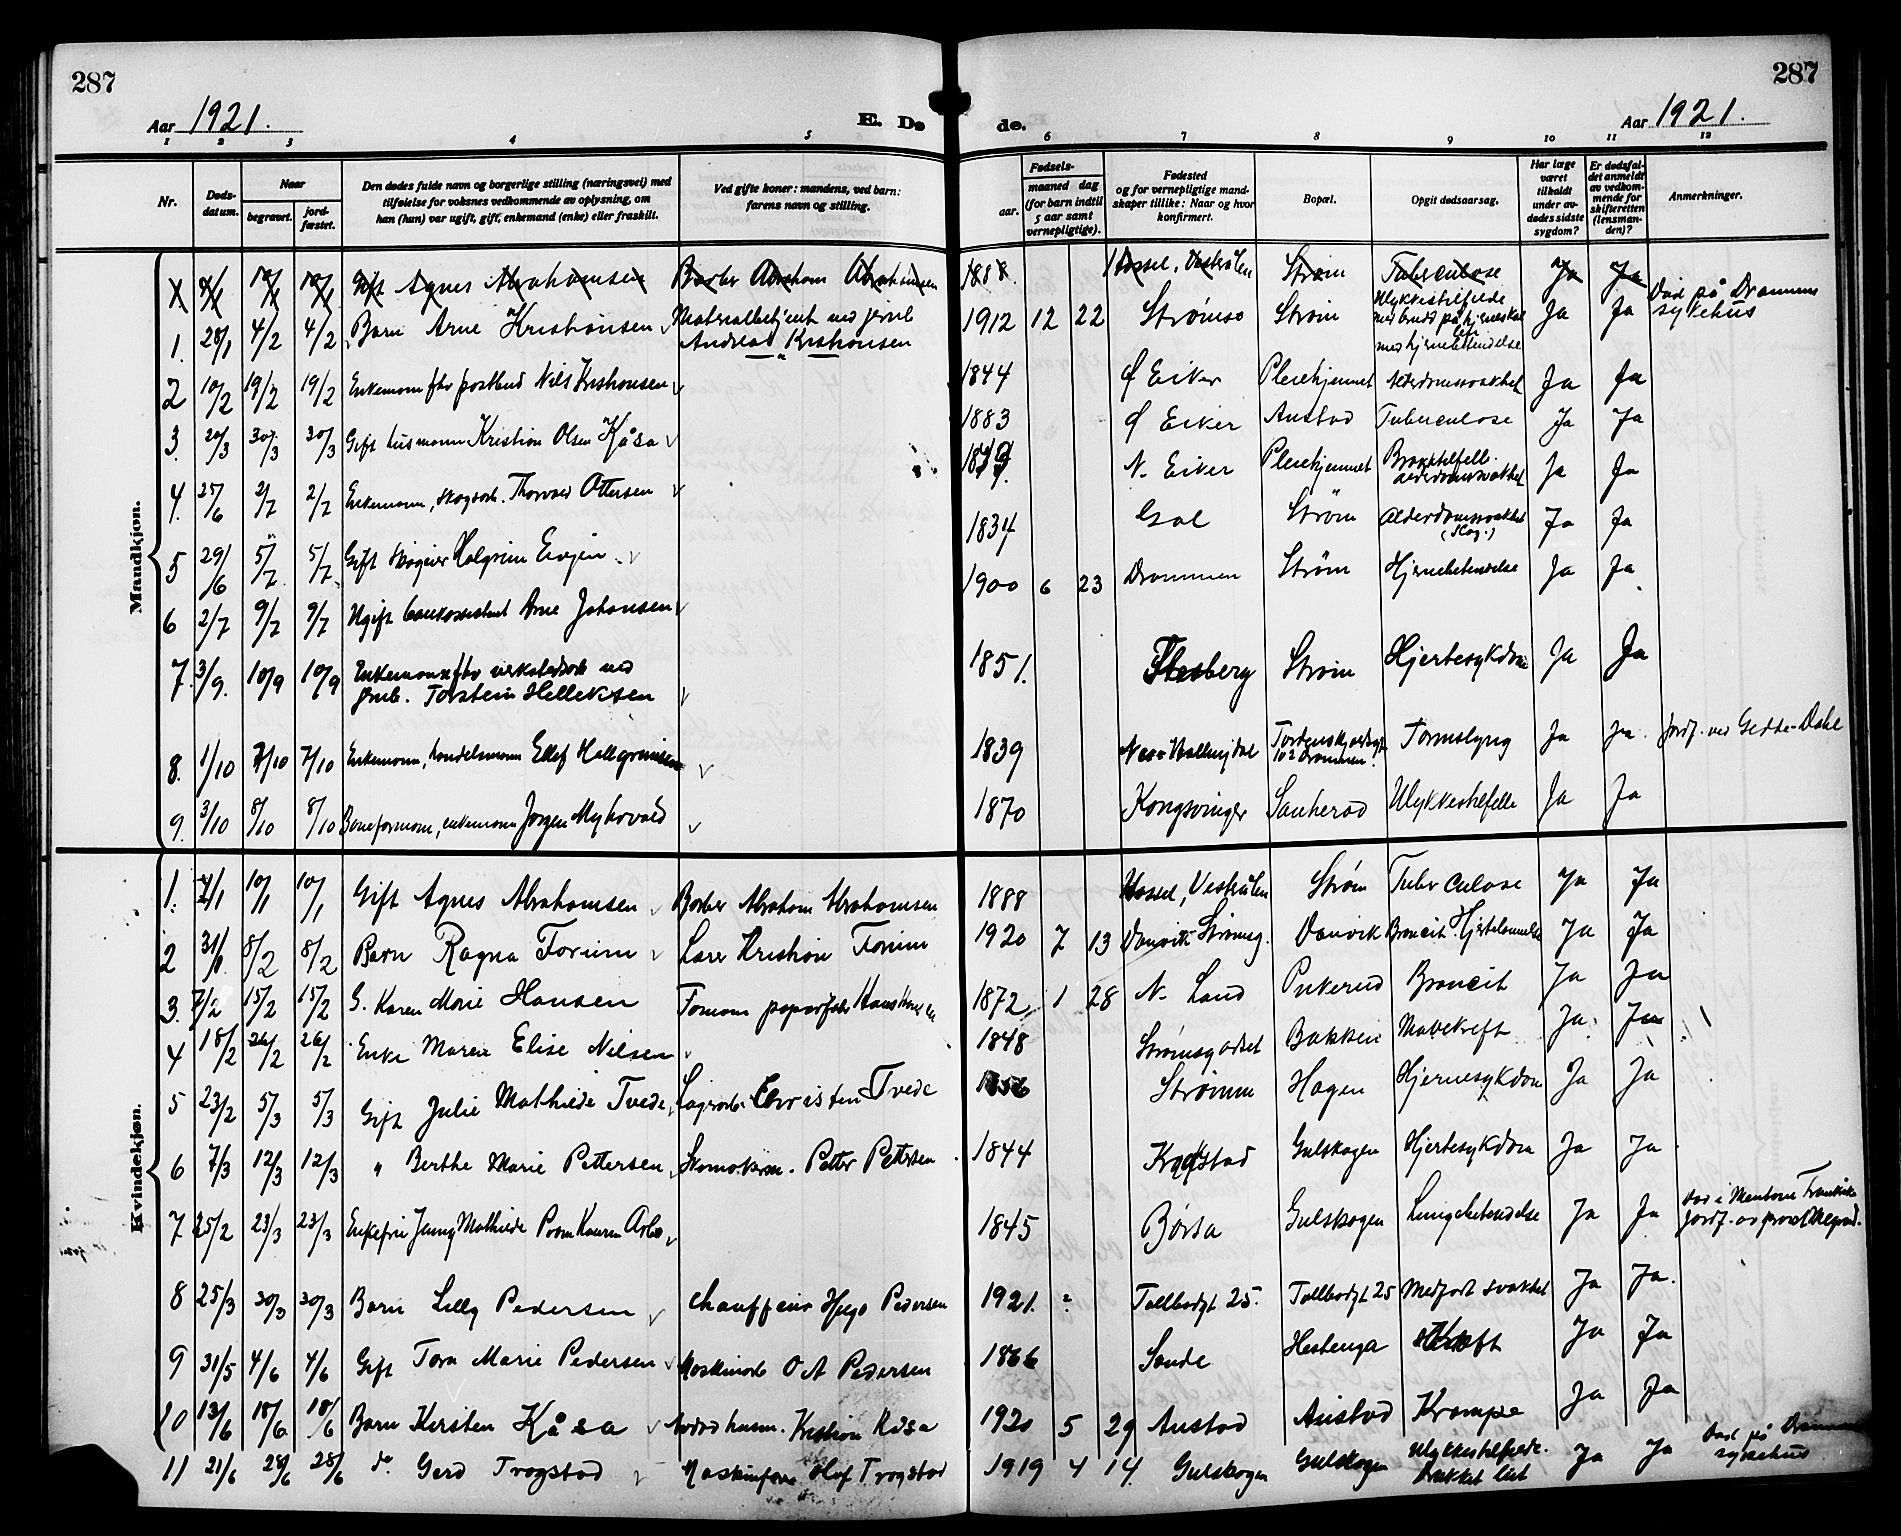 287
287
Aar 1921.
E. Dø
de.
Aar 1921.
1 2 3 4 5 6 7 8 9 10 11 12
Nr.
Døds-
datum.
Naar
begravet.
jord-
fæstet.
Den dødes fulde navn og borgerlige stilling (næringsvei) med
tilføielse for voksnes vedkommende av oplysning, om
han (hun) var ugift, gift, enkemand (enke) eller fraskilt.
Ved gifte koner: mandens, ved barn:
farens navn og stilling.
Fødsels-
aar.
maaned dag
(for barn indtil
5 aar samt
vernepligtige).
Fødested
og for vernepligtige mand-
skaper tillike: Naar og hvor
konfirmert.
Bopæl.
Opgit dødsaarsag.
Har læge
været
tilkaldt
under av-
dødes sidste
sygdom?
Er dødsfal-
det anmeldt
av vedkom-
mende for
skifteretten
(lensman-
den)?
Anmerkninger.
Mandkjøn.
Gift Agnes Abrahamsen Barber Abraham Abrahamsen 1888 Hassel, Vesterålen Strøm Tuberculose Ja Ja
1. 28/1 4/2 4/2 Barn Arne Kristiansen Materialbetjent ved jernb. Andreas Kristiansen 1912 12 22 Strømsø Strøm Ulykkestilfelde med brudd på hjerneskal med hjernebetendelse Ja Ja Død på Drammens sykehus
2 10/2 19/2 19/2 Enkemann fhv postbud Nils Kristiansen 1844 Ø Eiker Pleiehjemmet Alderdomssvakhet Ja Ja
3. 20/3 30/3 30/3 Gift husmann Kristian Olsen Kåsa 1883 Ø Eiker Austad Tuberculose Ja Ja
4. 25/6 2/7 2/7 Enkemann, skogsarb. Thorvald Ottersen N. Eiker Pleiehjemmet alderdomssvakhet Ja Ja
5 29/6 5/7 5/7 Gift Halgrim 1834 Gol Strøm Alderdomssvakhet Ja Ja
6 2/7 9/7 9/7 Ugift bankassistent Arne Johansen 1900 6 23 Drammen Strøm Hjernebetendelse Ja Ja
7. 3/9. 10/9 10/9 Enkemann fhv verkstedarb ved jernb. Torstein Helleksen 1851. Flesberg Strøm Hjertesykdom Ja Ja
8. 1/10 7/10 7/10 Enkemann, handelsmann Ellef Hallgrimsen 1839 Nes i Hallingdal Tordenskjoldsgt 102 Drammen. Tarmslyng Ja Ja. jordf. ved Gedde-Dahl
9. 3/10 8/10 8/10 Baneformann, enkemann Jørgen Myhrvold 1870 Kongsvinger Sauherad Ulykkestilfelle Ja Ja
Kvindekjøn.
1. 4/1 10/1 10/1 Gift Agnes Abrahamsen Barber Abraham Abrahamsen 1888 Hassel, Vesterålen Strøm Tuberculose Ja Ja
2 31/1 8/2 8/2 Barn Ragna Forum Lars Kristian Forum 1920 7 13 Danvik Strømsg. Danvik Broncit Hjertelammelse Ja Ja
3. 7/2 15/2 15/2 G. Karen Marie Hansen Formann papirfabr Hans Hansen 1872 1 28 N. Land Pukerud Broncit Ja Ja
4 18/2 26/2 26/2 Enke Maren Elise Nilsen 1848 Strømsgodset Bakken Mavekreft Ja. Ja
5 23/2 5/3 5/3 Gift Julie Mathilde Tvede Lagerarb. Christen Tvede 1856 Strømm Hagen Hjernesykdom Ja Ja
6 7/3 12/3 12/3 " Berthe Marie Pettersen Skomakerm. Petter Pettersen 1844 Krogstad Gulskogen Hjertesykdom Ja Ja
7 25/2 23/3 23/3 Enkefru Jenny Mathilde Arbo 1845 Børsa Gulskogen Lungebetendelse Ja Ja Død i Mentone Frankrike jordf. av prost
8 25/3 30/3 30/3 Barn Lilly Pedersen Chauffeur Hugo Pedersen 1921. Tollbodgt 25. Tollbodgt 25 Medfødt svakhet Ja Ja.
9 31/5 4/6 4/6 Gift Tora Marie Pedersen Maskinarb O A Pedersen 1866 Sande Hestenga Kreft Ja Ja
10 13/6 18/6 18/6 Barn Kersten Kåsa husm. Kristian Kåsa 1920 5 29 Austad Austad Krampe Ja Ja
11 21/6 28/6 28/6 do. Gerd Trogstad Olaf Trogstad 1919 4 14. Gulskogen Gulskogen Ulykkestilfelde. Drukket lut Ja Ja Død på Drammens sykehus